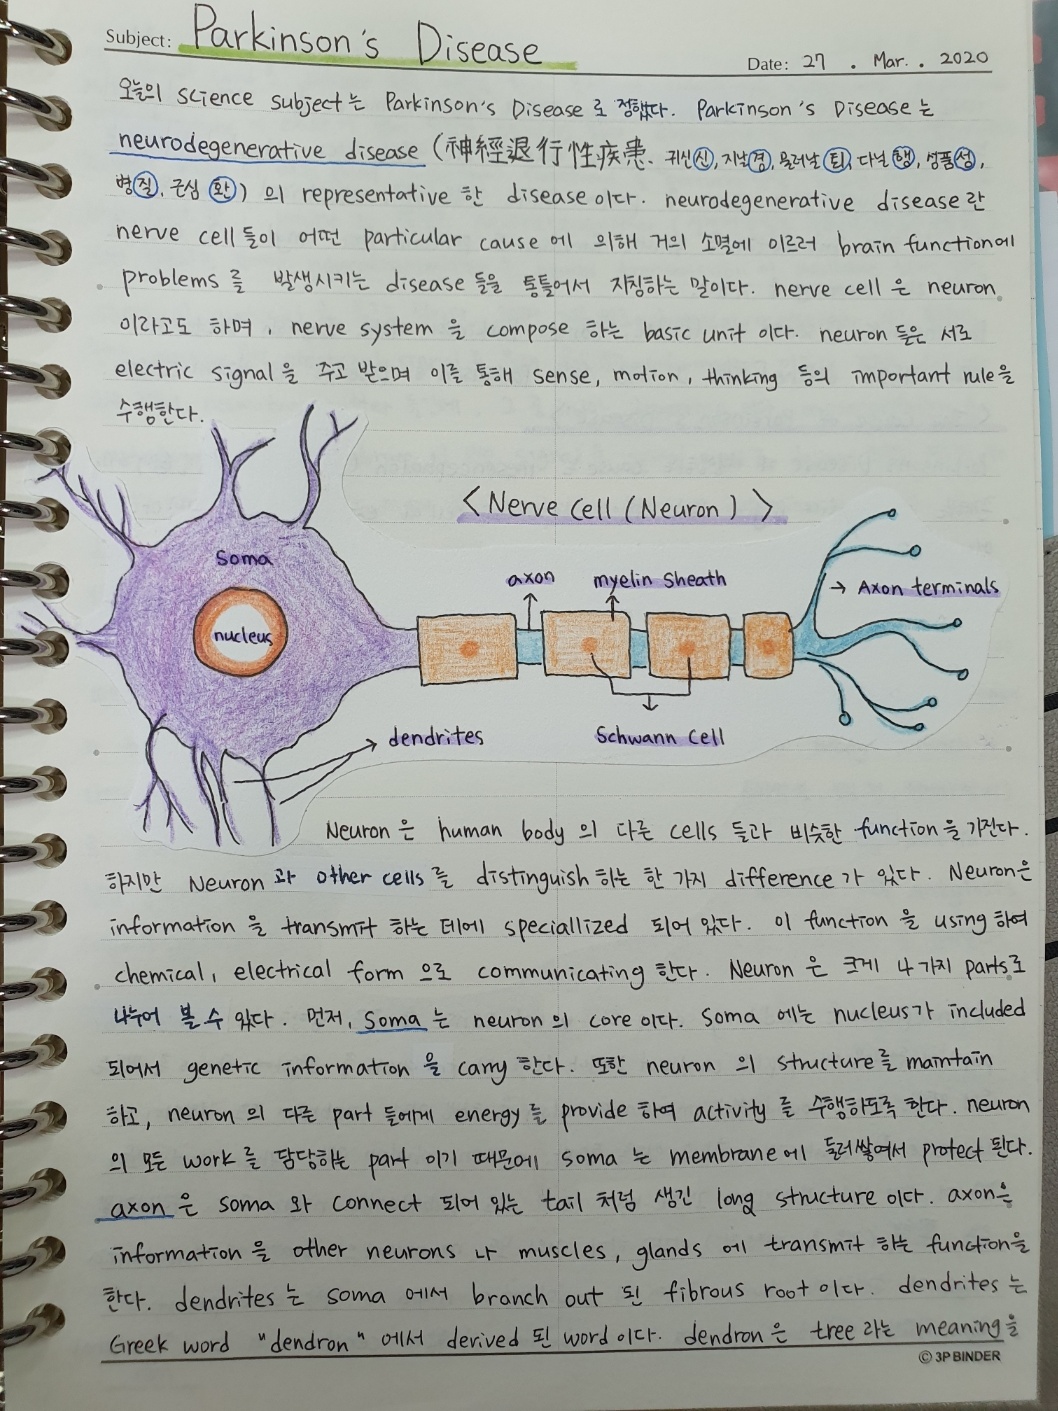 Subject: Parkinson's Disease
Date: 27 . Mar. . 2020
오늘의 science subject는 Parkinson's Disease로 정했다. Parkinson's Disease는
neurodegenerative disease (神經退行性疾患, 귀신신, 지날경, 물러날퇴, 다닐행, 성품성,
병질, 근심환) 의 representative 한 disease이다. neurodegenerative disease란
nerve cell들이 어떤 particular cause에 의해 거의 소멸에 이르러 brain function에
problems를 발생시키는 disease들을 통틀어서 지칭하는 말이다. nerve cell은 neuron
이라고도 하며, nerve system을 compose 하는 basic unit 이다. neuron들은 서로
electric signal을 주고 받으며 이를 통해 sense, motion, thinking 등의 important rule을
수행한다.
<Nerve cell (Neuron)>
Soma
nucleus
axon
myelin Sheath
→ Axon terminals
dendrites
Schwann cell
Neuron은 human body의 다른 cells들과 비슷한 function을 가진다.
하지만 Neuron과 other cells를 distinguish하는 한 가지 difference가 있다. Neuron은
information을 transmit 하는 데에 speciallized 되어 있다. 이 function을 using하여
chemical, electrical form으로 communicating 한다. Neuron은 크게 4가지 parts로
나누어 볼 수 있다. 먼저, soma는 neuron의 core이다. soma에는 nucleus가 included
되어서 genetic information을 carry 한다. 또한 neuron의 structure를 maintain
하고, neuron의 다른 part들에게 energy를 provide하여 activity를 수행하도록 한다. neuron
의 모든 work를 담당하는 part이기 때문에 soma는 membrane에 둘러쌓여서 protect 된다.
axon은 soma와 connect 되어 있는 tail처럼 생긴 long structure이다. axon은
information을 other neurons나 muscles, glands에 transmit 하는 function을
한다. dendrites는 soma에서 branch out 된 fibrous root이다. dendrites는
Greek word "dendron"에서 derived 된 word이다. dendron은 tree라는 meaning을
© 3P BINDER